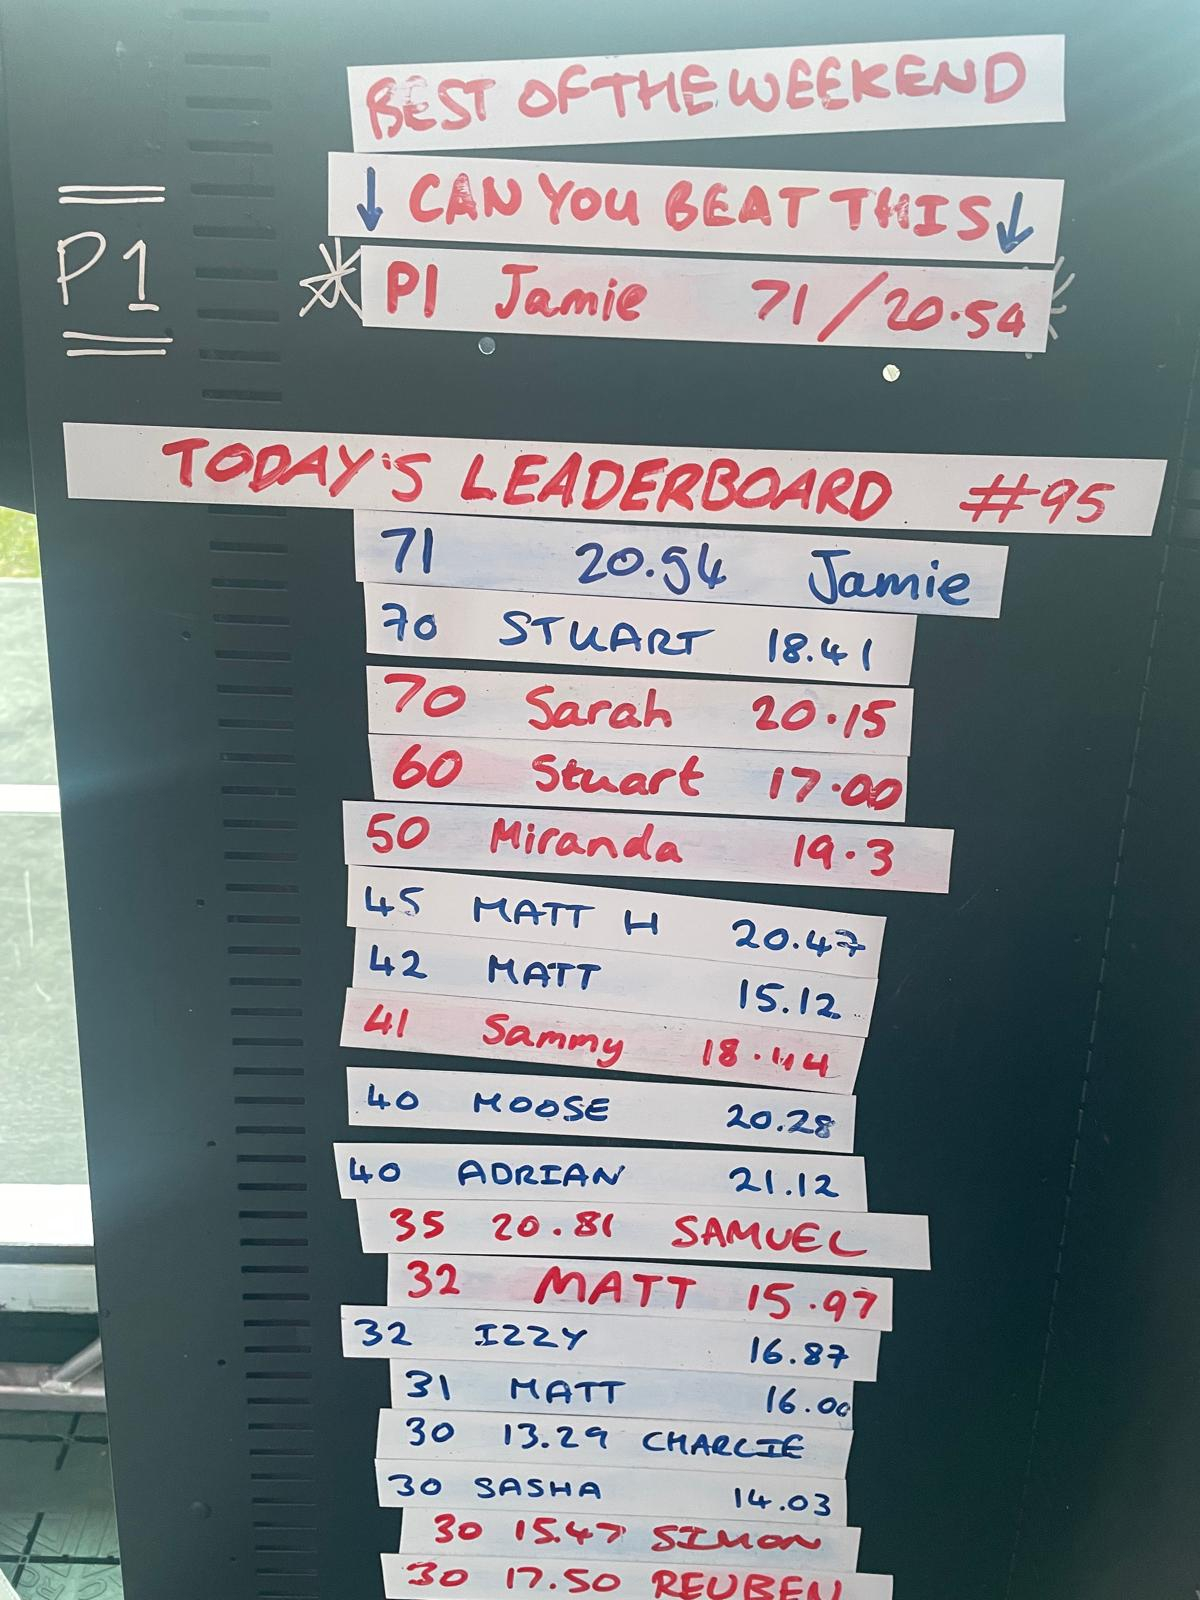 BEST OF THE WEEKEND
↓ CAN YOU BEAT THIS ↓
P1
P1 Jamie 71 / 20.54
TODAY'S LEADERBOARD #95
71 20.54 Jamie
70 STUART 18.41
70 Sarah 20.15
60 Stuart 17.00
50 Miranda 19.3
45 MATT H 20.47
42 MATT 15.12
41 Sammy 18.44
40 MOOSE 20.28
40 ADRIAN 21.12
35 20.81 SAMUEL
32 MATT 15.97
32 IZZY 16.87
31 MATT 16.00
30 13.29 CHARLIE
30 SASHA 14.03
30 15.47 SIMON
30 17.50 REUBEN